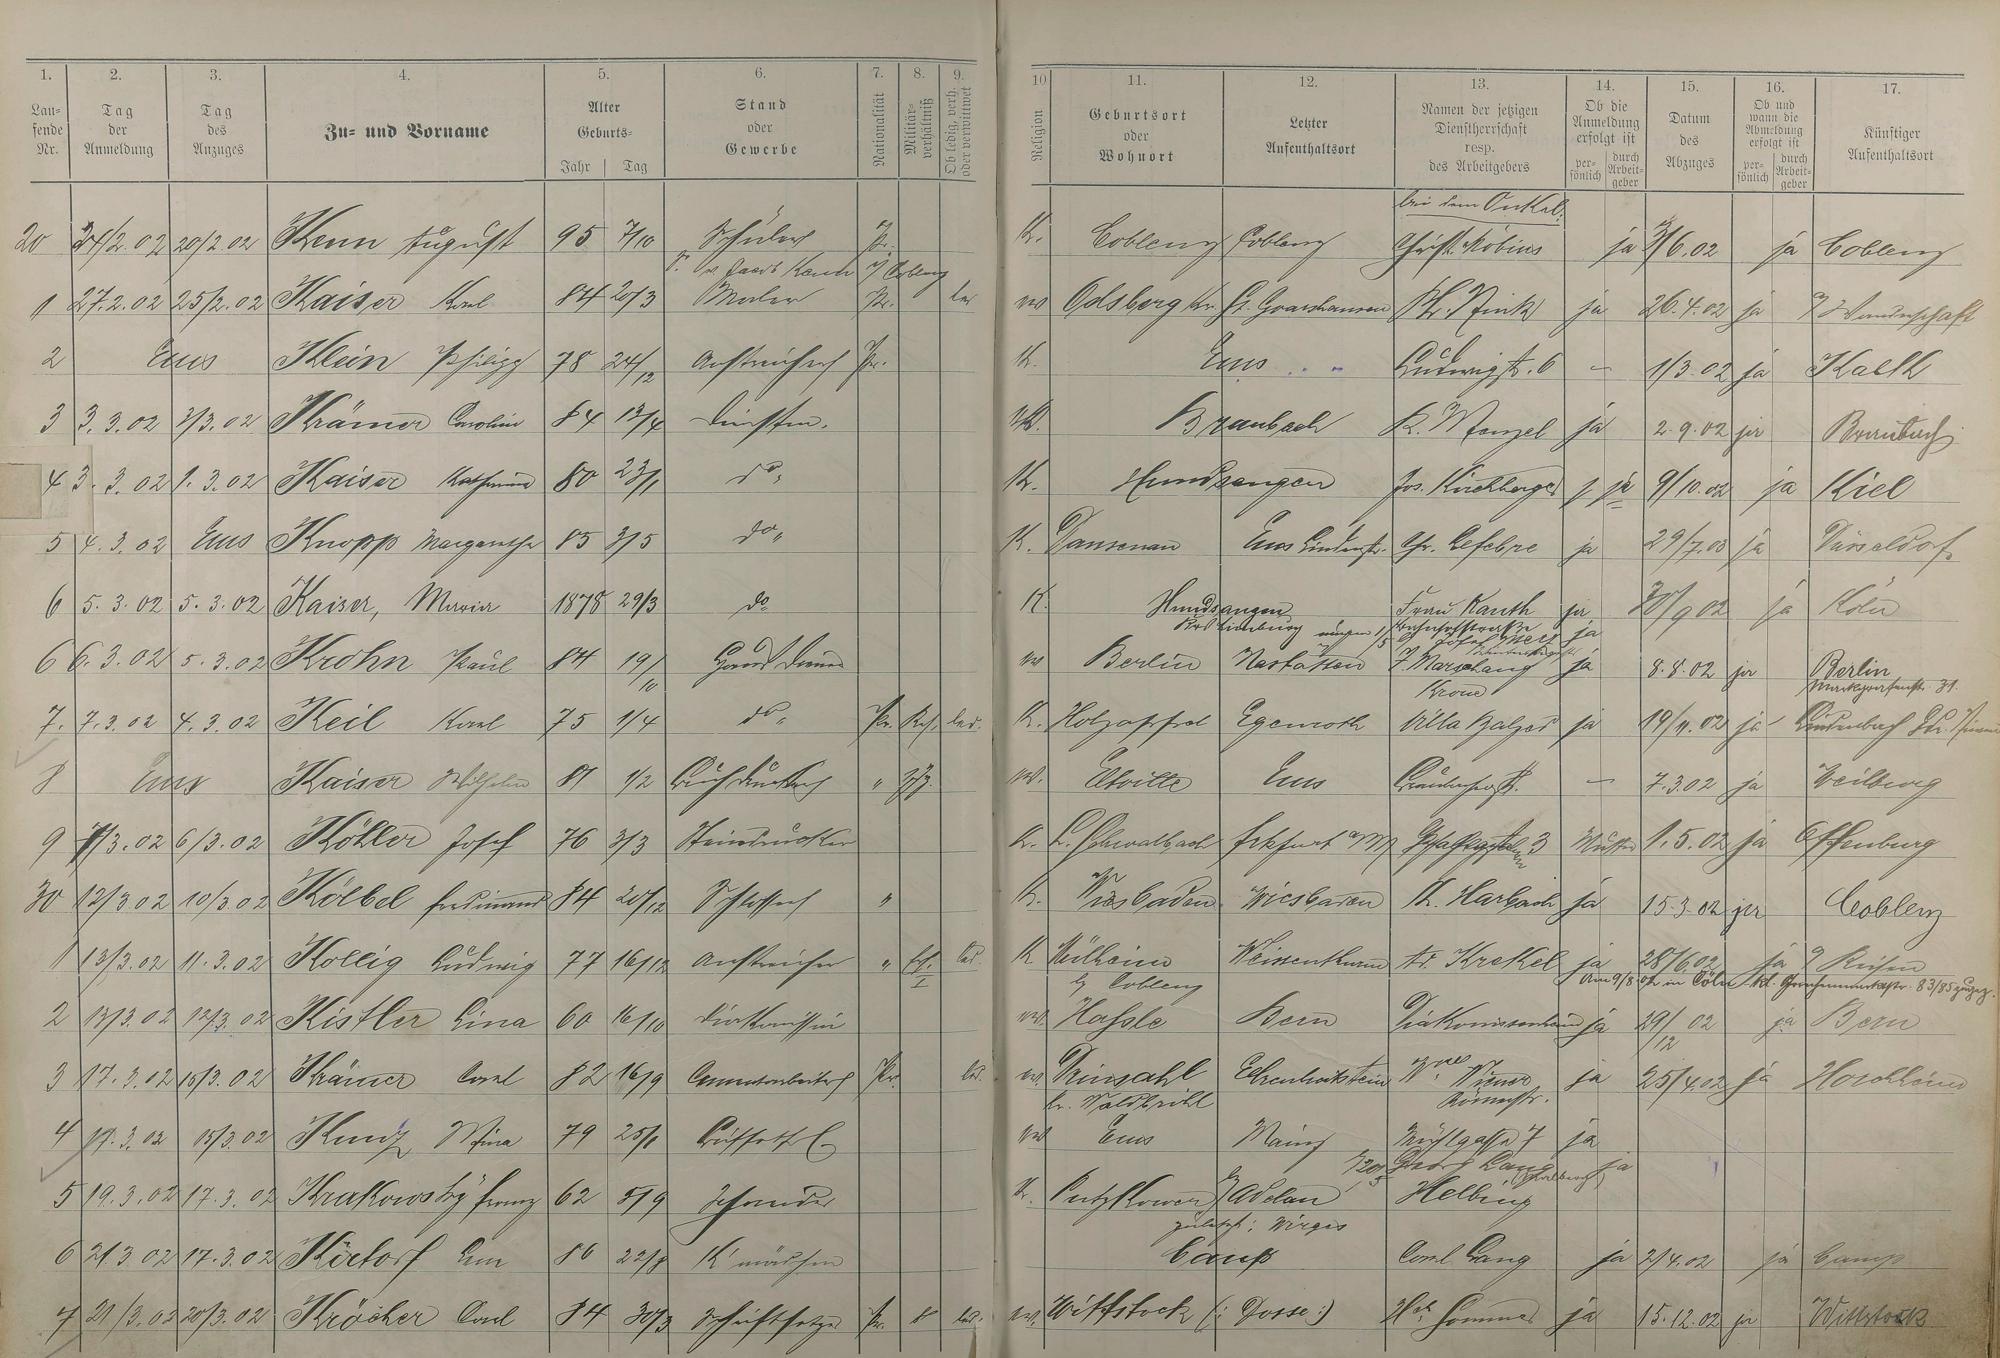 1. 2. 3. 4. 5. 6. 7. 8. 9. 10 11. 12. 13. 14. 15. 16. 17.
Lau-fende Nr. Tag der Anmeldung Tag des Anzuges Zu- und Vorname Alter Geburts- Jahr Tag Stand oder Gewerbe Nationalität Militär-verhältniß Ob ledig, verh. oder verwittwet Religion Geburtsort oder Wohnort Letzter Aufenthaltsort Namen der jetzigen Dienstherrschaft resp. des Arbeitgebers Ob die Anmeldung erfolgt ist per-sönlich durch Arbeit-geber Datum des Abzuges Ob und wann die Abmeldung erfolgt ist per-sönlich durch Arbeit-geber Künftiger Aufenthaltsort
bei dem Onkel.
20 24/2.02 20/2 02 Kenn August 95 7/10 Schüler Pr. K. Coblenz Coblenz Christ. Möbius ja 3/6.02 ja Coblenz
S. v. Jacob Kenn i/ Coblenz
1 27.2.02 25/2.02 Kaiser Karl 84 20/3 Maler Pr. led ev Odsberg Kr. St. Goarshausen Ph. Fink ja 26.4.02 ja a/ Wanderschaft
2 Ems Klein Philipp 78 24/12 Anstreicher Pr. K. Ems Ludwigstr. 6 – 1/3.02 ja Kalk
3 3.3.02 3/3.02 Krämer Caroline 84 13/4 Dienstm. K. Braubach K. Wenzel ja 2.9.02 ja Braubach
4 3.3.02 1.3.02 Kaiser Katharina 80 23/1 do. K. Hundsangen Jos. Kirchberger ja 9/10.02 ja Kiel
5 4.3.02 Ems Knopp Margarethe 85 3/5 do. K. Dausenau Ems Lindenstr. Chr. Lefebre ja 29/7.03 ja Düsseldorf
6 5.3.02 5.3.02 Kaiser, Maria 1878 29/3 do K. Hundsangen Frau Kauth ja 30/9 02 ja Köln
Krs Limburg Bahnhofstraße ja
6 6.3.02 5.3.02 Krohn Paul 84 19/10 Hausdiener ev Berlin Nastätten F. Marschang ja 8.8.02 ja Berlin
Krone Markgrafenstr. 31.
7. 7.3.02 4.3.02 Keil Karl 75 1/4 do. Pr. Res. led. K. Holzappel Egenroth Villa Balzer ja 19/11.02 ja
8 Ems Kaiser Wilhelm 81 1/2 Buchdrucker " ev. Eltville Ems Graubacherstr. – 7.3.02 ja Weilburg
9 7/3.02 6/3.02 Köhler Josef 76 3/3 Steindrucker K. L. Schwalbach Frkfurt a/M 3 Mutter 1.5.02 ja Offenburg
30 12/3.02 10/3.02 Kölbel Ferdinand 84 20/12 Schlosser " K. Wiesbaden Wiesbaden Th. Harbach ja 15.3.02 ja Coblenz
1 13/3.02 11.3.02 Kollig Ludwig 77 16/12 Anstreicher " led. K Mülheim Weissenthurm Ad. Krekel ja 28/6.02 ja a/ Reisen
b/ Coblenz Am 9/8 02 in Cöln 83/85 zugez.
2 13/3.02 12/3.02 Kistler Lina 60 16/10 Diakonissin ev. Hassle Bern Diakonissenheim ja 29/12 02 ja Bern
3 17.3.02 15/3.02 Krämer Carl 82 16/9 Cementarbeiter Pr. led. ev. Drinsahl Ehrenbreitstein Wwe Wiener ja 25/4.02 ja Horchheim
Kr. Waldbröhl Römerstr.
4 17.3.02 15/3.02 Kunz Mina 79 25/1 ev Ems Mainz Mühlgasse 7 ja
Georg Lang ja
5 19.3.02 17.3.02 Krakowsky Franz 62 5/9 Schneider K. Helbing
zuletzt: Wirges
6 21.3.02 17.3.02 Kirdorf 86 22/8 K mädchen Camp Carl Lang ja 2/4.02 ja Camp
7 21/3.02 20/3.02 Kröcher Carl 84 30/3 Schriftsetzer Pr. led. ev. Wittstock (: Dosse :) Hch. Sommer ja 15.12.02 ja Wittstock